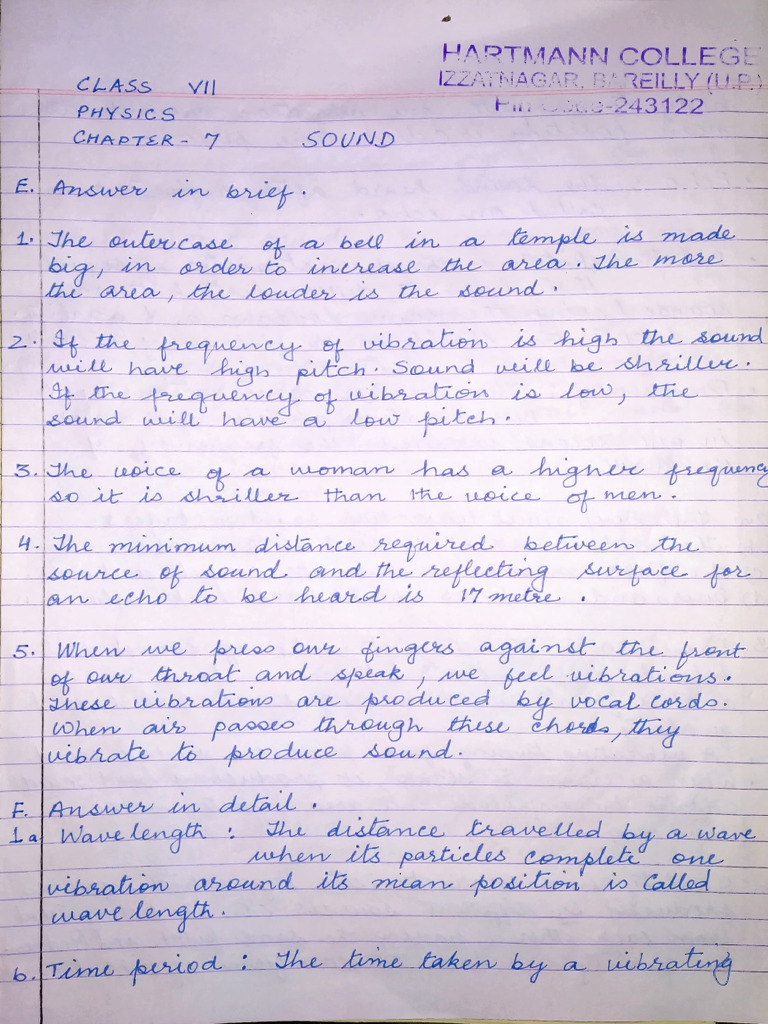 HARTMANN COLLEGE
IZZATNAGAR, BAREILLY (U.P.)
Pin Code-243122
CLASS VII
PHYSICS
CHAPTER - 7 SOUND
E. Answer in brief.
1. The outercase of a bell in a temple is made
big, in order to increase the area. The more
the area, the louder is the sound.
2. If the frequency of vibration is high the sound
will have high pitch. Sound will be shriller.
If the frequency of vibration is low, the
sound will have a low pitch.
3. The voice of a woman has a higher frequency
so it is shriller than the voice of men.
4. The minimum distance required between the
source of sound and the reflecting surface for
an echo to be heard is 17 metre.
5. When we press our fingers against the front
of our throat and speak, we feel vibrations.
These vibrations are produced by vocal cords.
When air passes through these chords, they
vibrate to produce sound.
F. Answer in detail.
1a Wave length : The distance travelled by a wave
when its particles complete one
vibration around its mean position is called
wave length.
b. Time period : The time taken by a vibrating